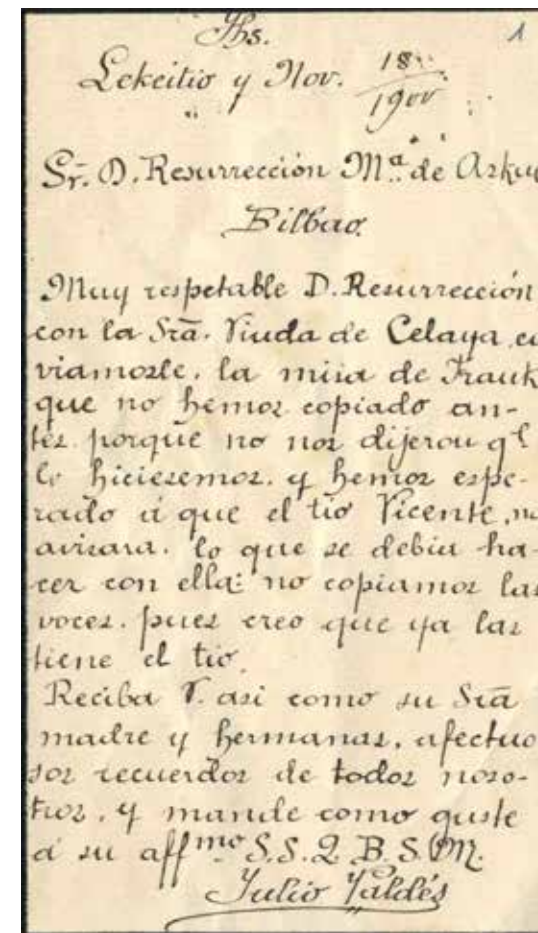 Jhs. 1
Lekeitio y Nov. 18/1900
Sr. D. Resurrección Mª. de Azkue
Bilbao.
Muy respetable D. Resurrección
con la Srā. Viuda de Celaya en
viamosle, la misa de Frank
que no hemos copiado an-
tes porque no nos dijeron ql
lo hiciesemos, y hemos espe-
rado á que el tio Vicente, no
avisara, lo que se debia ha-
cer con ella: no copiamos las
voces, pues creo que ya las
tiene el tio.
Reciba V. asi como su Srā
madre y hermanas, afectuo
sos recuerdos de todos noso-
tros, y mande como guste
á su affmo S. S. Q. B. S. M.
Julio Valdés